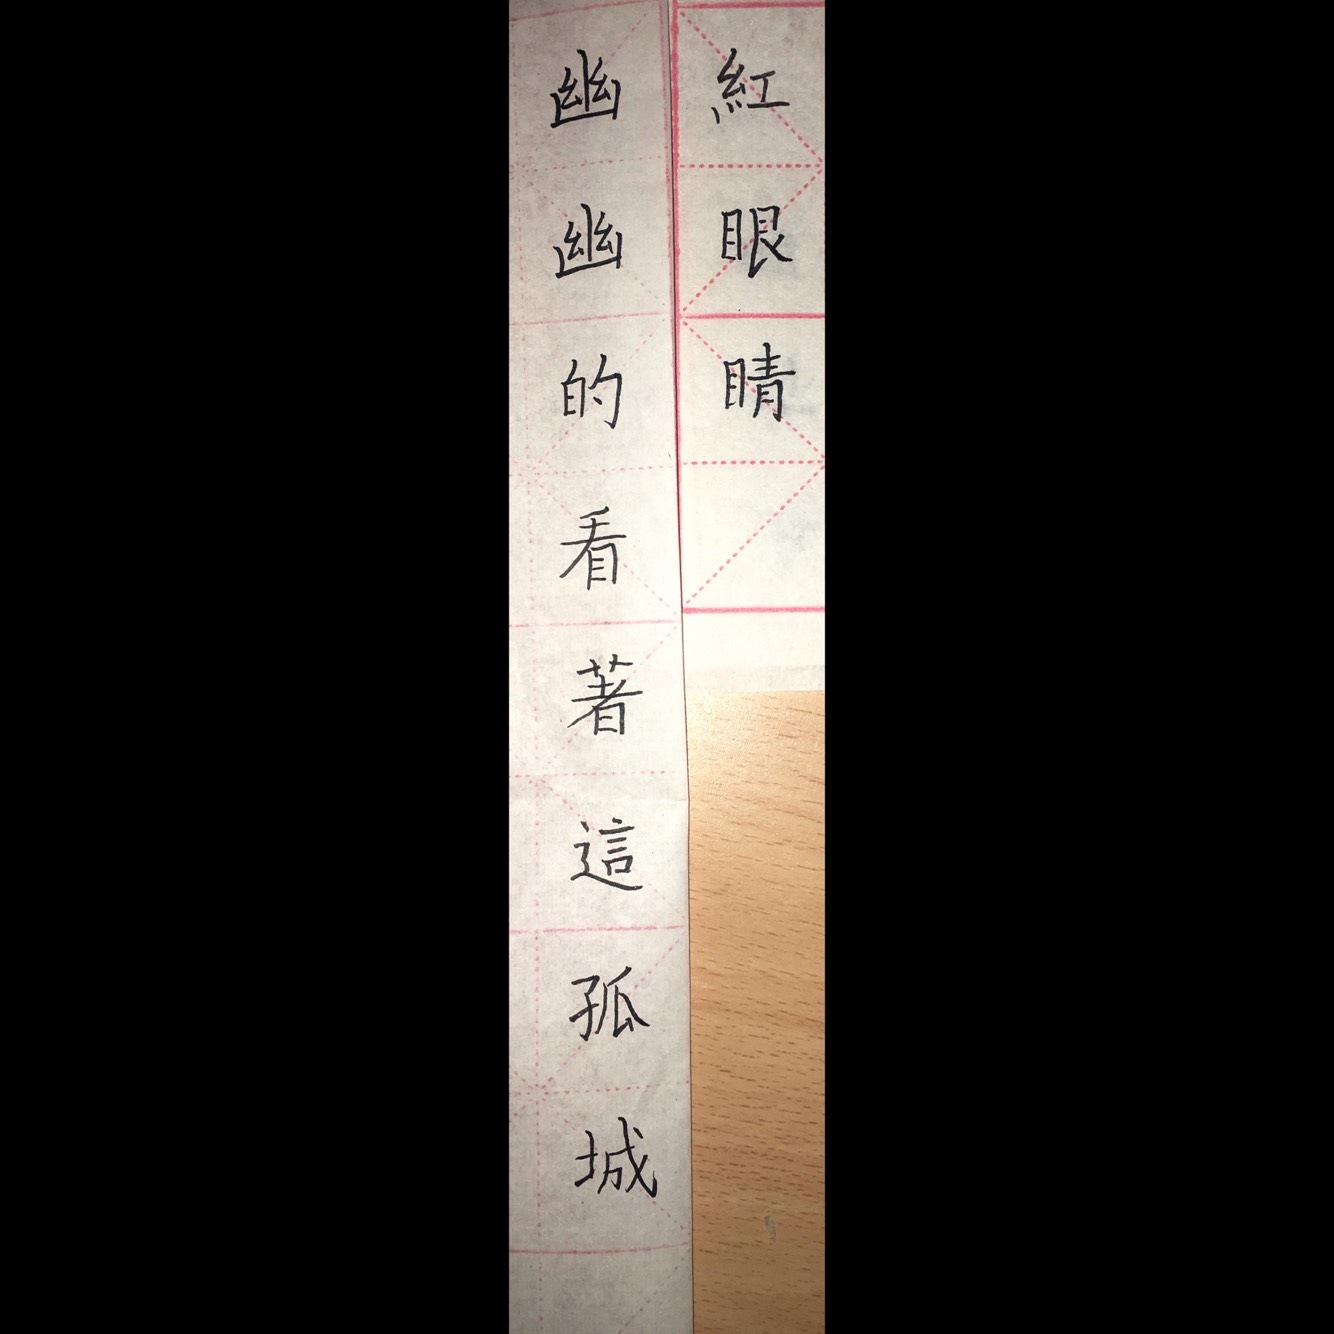 紅眼睛
幽幽的看著這孤城